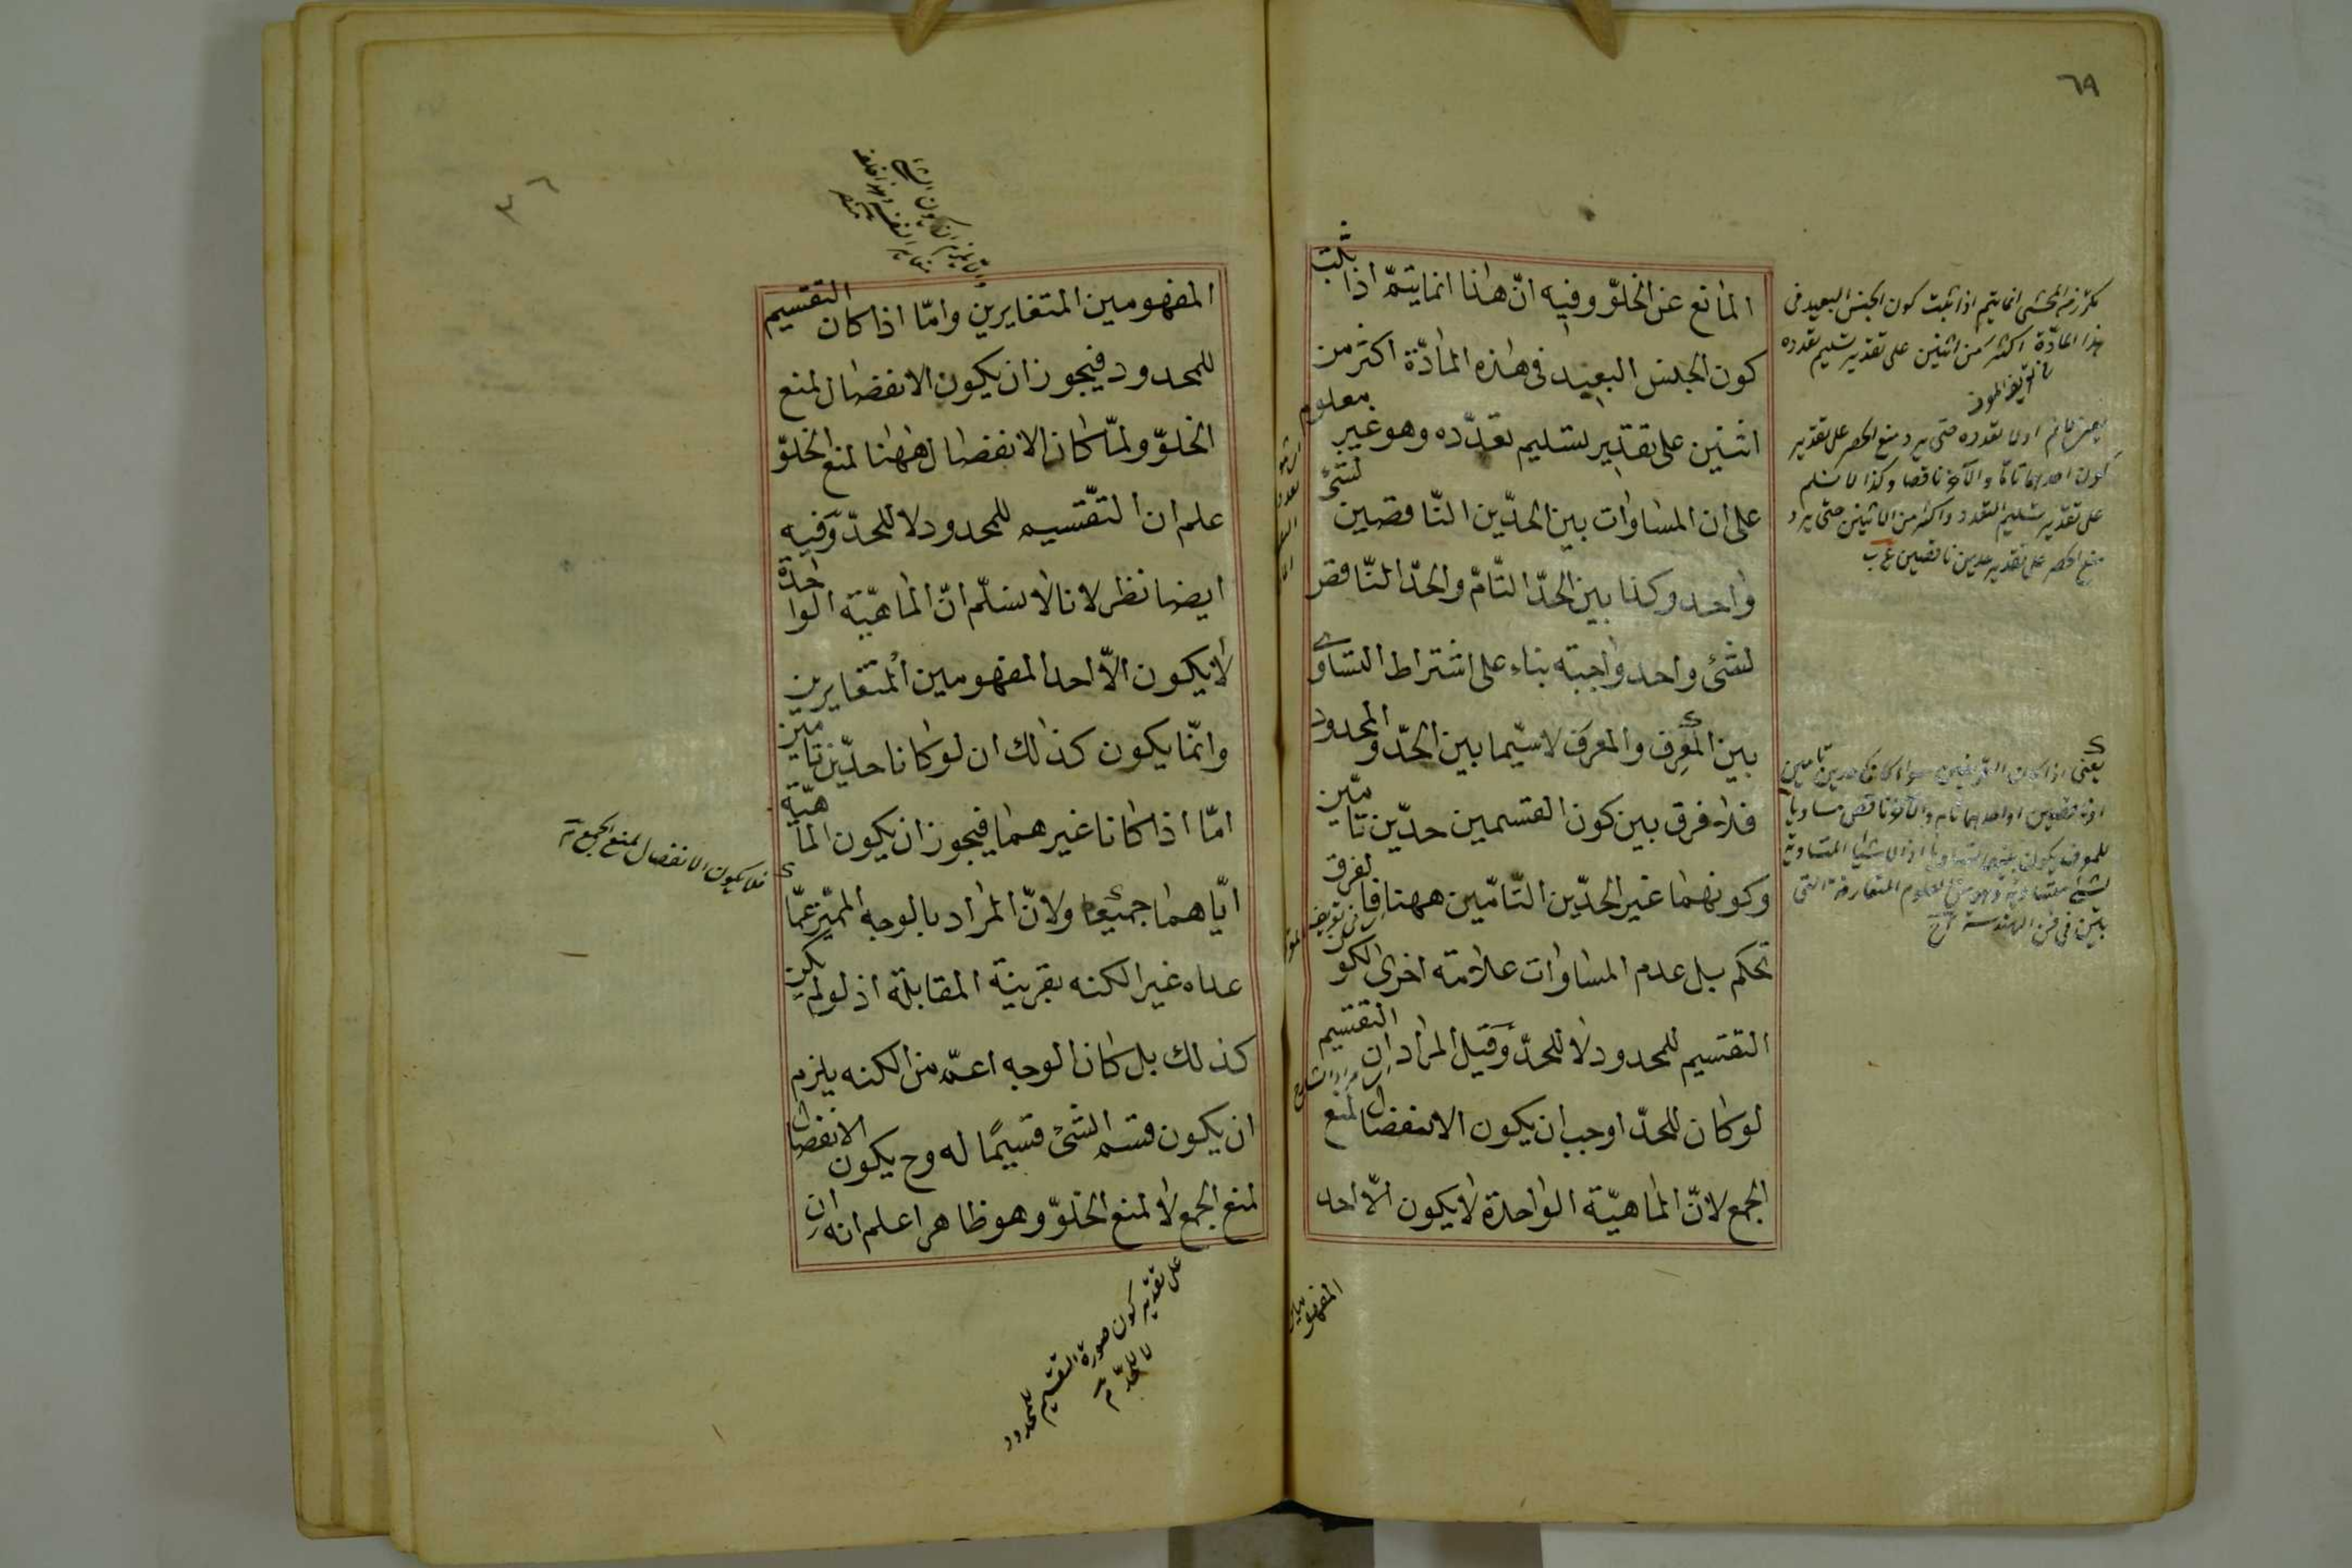 ٦٩
المانع عن الخلوّ وفيه انّ هذا انما يتمّ اذا ثبت
كون الجنس البعيد فى هذه المادّة اكثر من
اثنين على تقدير تسليم تعدّده وهو غير معلوم
على ان المساوات بين الحدّين النّاقصين لشئ
واحد وكذا بين الحدّ التّامّ والحدّ النّاقص
لشئ واحد واجبة بناء على اشتراط التساوى
بين المعرِف والمعرف لاسيّما بين الحدّ والمحدود
فلا فرق بين كون القسمين حدّين تامّين
وكونهما غير الحدّين التّامّين ههنا فالفرق
تحكم بل عدم المساوات علامة اخرى لكون
التقسيم للمحدود لا للحدّ وقيل المراد ان التقسيم
لو كان للحدّ اوجب ان يكون الانفصال لمنع
الجمع لانّ الماهيّة الواحدة لا يكون الّا احد
المفهومين
المحشى انما يتم اذا ثبت كون الجنس البعيد فى
هذا المادّة اكثر من اثنين على تقدير تسليم تعدده
تعريف
تعدده حتى يرد منع الحصر على تقدير
كون احدهما تامّا والآخر ناقصا وكذا لا نسلم
على تقدير تسليم التعدد واكثر من الاثنين حتى يرد
منع الحصر على تقدير حدين ناقصين
يعنى اذا كان التعريفين سواء كان حدين تامين
او ناقصين او احدهما تام والآخر ناقص مساويا
للمعرف يكون بينهما تساويا اذ الاشياء المتساوية
لشئ متساوية وهو من العلوم المتعارفة التى
يبيّن فى فن الهندسة
٣٦
المفهومين المتغايرين وامّا اذا كان التقسيم
للمحدود فيجوز ان يكون الانفصال لمنع
الخلوّ ولمّا كان الانفصال ههنا لمنع الخلوّ
علم ان التقّسيم للمحدود لا للحدّ وفيه
ايضا نظر لانا لا نسلّم انّ الماهيّة الواحدة
لا يكون الّا احد المفهومين المتغايرين
وانّما يكون كذلك ان لو كانا حدّين تامين
امّا اذا كانا غيرهما فيجوز ان يكون الماهيّة
ايّاهما جميعا ولانّ المراد بالوجه المميّز عمّا
عداه غير الكنه بقرينة المقابلة اذ لو لم يكن
كذلك بل كان الوجه اعمّ من الكنه يلزم
ان يكون قسم الشئ قسيمًا له وح يكون الانفصال
لمنع الجمع لا لمنع الخلوّ وهو ظاهر اعلم انه ان
فلا يكون الانفصال لمنع الجمع
على تقدير كون صورة التقسيم للمحدود
لا للحدّ